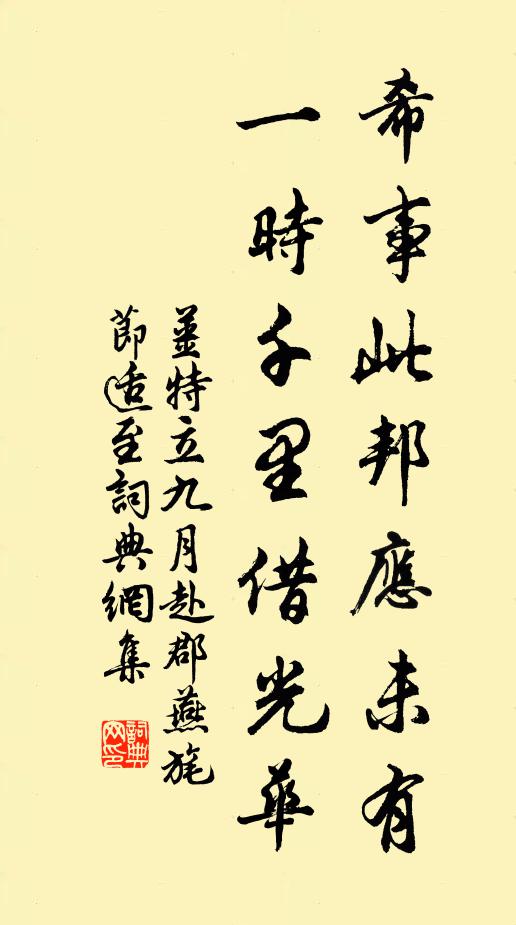 希事此邦應未有
一時千里借光華
姜特立九月赴郡燕旄
節適至詞典網集
詞典網印